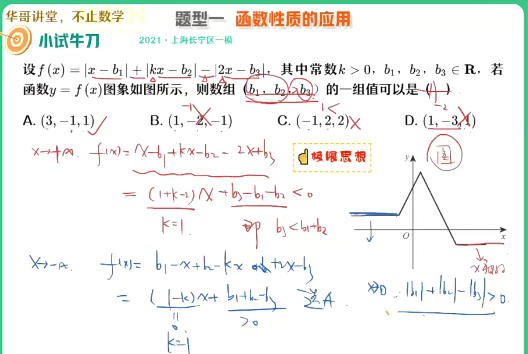 华哥讲堂，不止数学
题型一 函数性质的应用
小试牛刀
2021·上海长宁区一模
设f(x)=|x−b₁|+|kx−b₂|−|2x−b₃|，其中常数k>0，b₁，b₂，b₃∈R，若
函数y=f(x)图象如图所示，则数组(b₁，b₂，b₃)的一组值可以是( )
−1 1< −2
A. (3,−1,1) B. (1,−2,−1) C. (−1,2,2) D. (1,−3,1)
x→+∞. f(x)=x−b₁+kx−b₂−2x+b₃
极限思想
=(1+k−2)x+b₃−b₁−b₂<0
k=1 即 b₃<b₁+b₂
图
y
O
x
x→−∞. f(x)=b₁−x+b₂−kx+2x−b₃
=(1−k)x+b₁+b₂−b₃ 选A.
0 >0
k=1
|b₁|+|b₂|−|b₃|>0